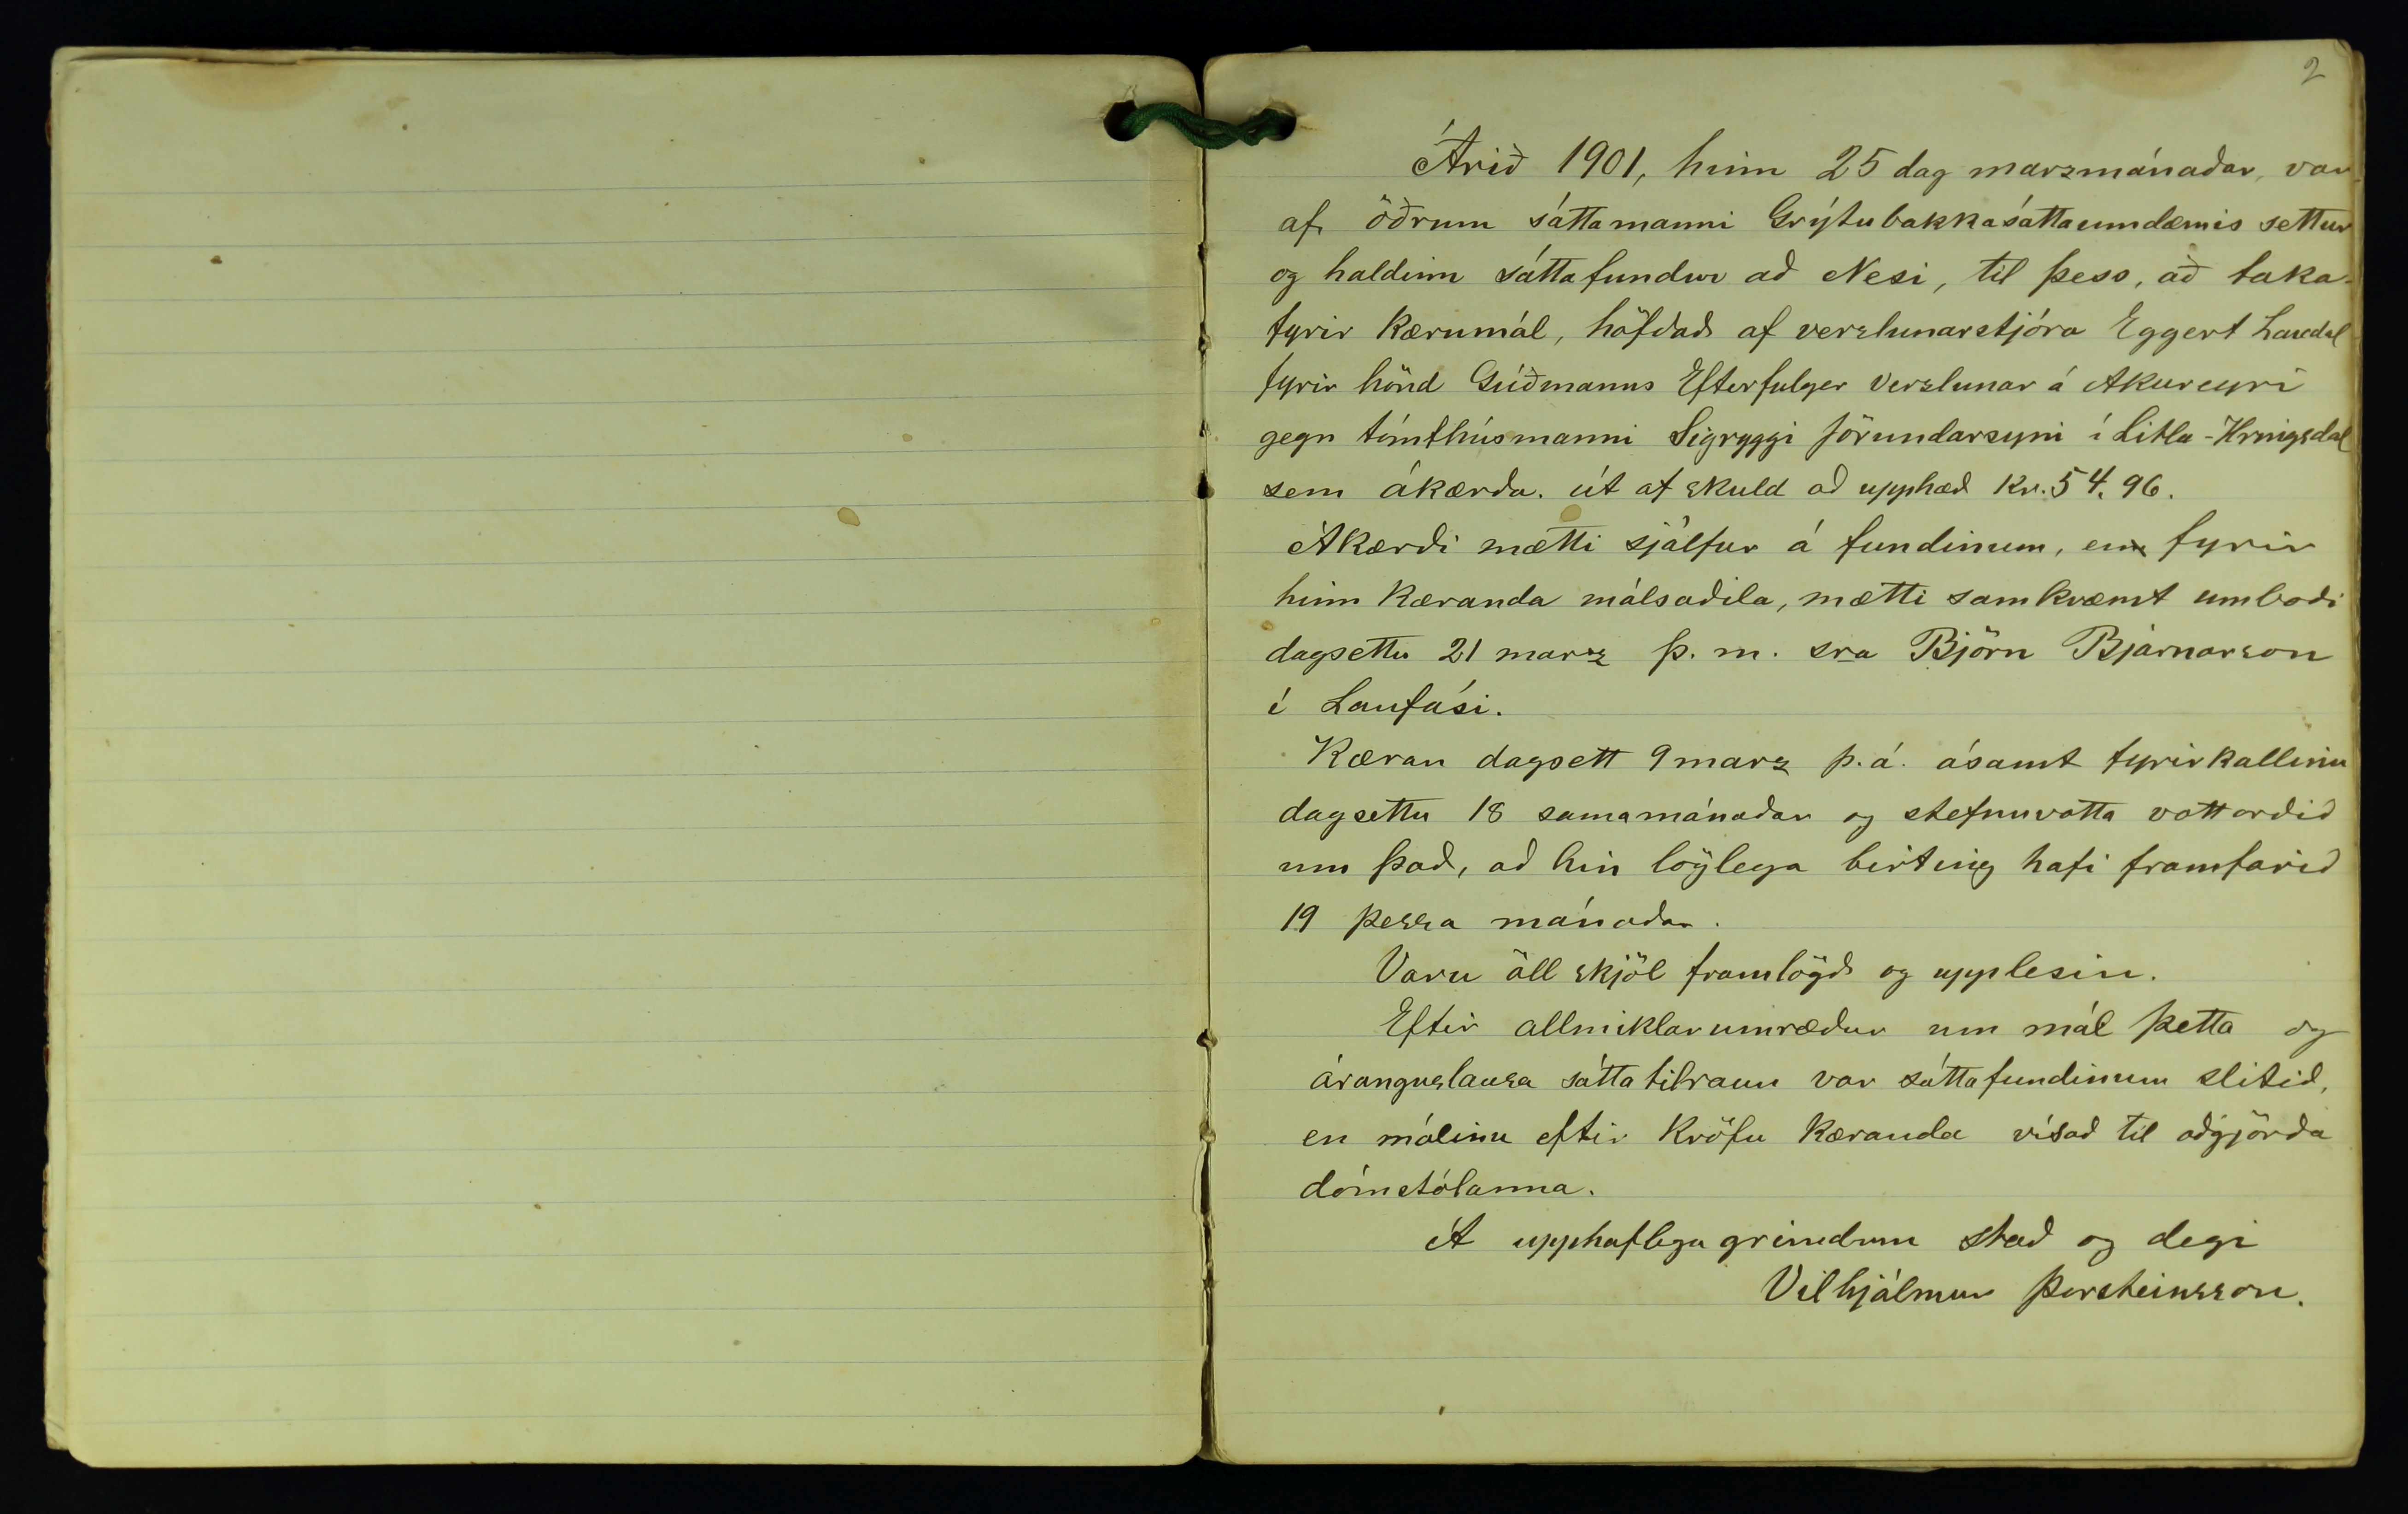 2
Árið 1901, hinn 25 dag marzmánaðar, var
af öðrum sáttamanni Grýtubakkasáttaumdæmis settur
og haldinn sáttafundur að Nesi, til þess, að taka
fyrir kærumál, höfðað af verzlunarstjóra Eggert Laxdal
fyrir hönd Gúðmanns Efterfølger Verzlunar á Akureyri
gegn tómthúsmanni Sigryggi Jörundarsyni í Litla-Hringsdal
sem ákærða. út af skuld að upphæð Kr. 54.96.
Ákærði mætti sjálfur á fundinum, en fyrir
hinn kæranda málsaðila, mætti samkvæmt umboði
dagsettu 21 marz þ. m. sra Björn Bjarnarson
í Laufási.
Kæran dagsett 9 marz þ. á. ásamt fyrirkallinu
dagsettu 18 samamánaðar og stefnuvotta vottorðið
um það, að hin löglega birting hafi framfarið
19 þessa mánaðar.
Varu öll skjöl framlögð og upplesin.
Eftir allmiklar umræður um mál þetta og
árangurslausa sáttatilraun var sáttafundinum slitið,
en málinu eftir kröfu kæranda vísað til aðgjörða
dómstólanna.
Á upphaflega greindum stað og degi
Vilhjálmur Þorsteinsson.